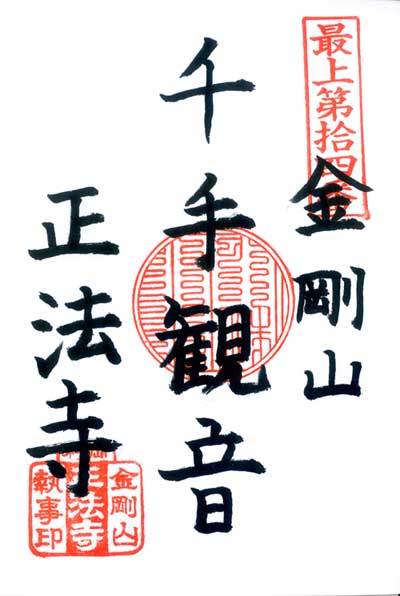 最上第拾四番
金剛山
千手観音
正法寺
金剛山
正法寺
執事印